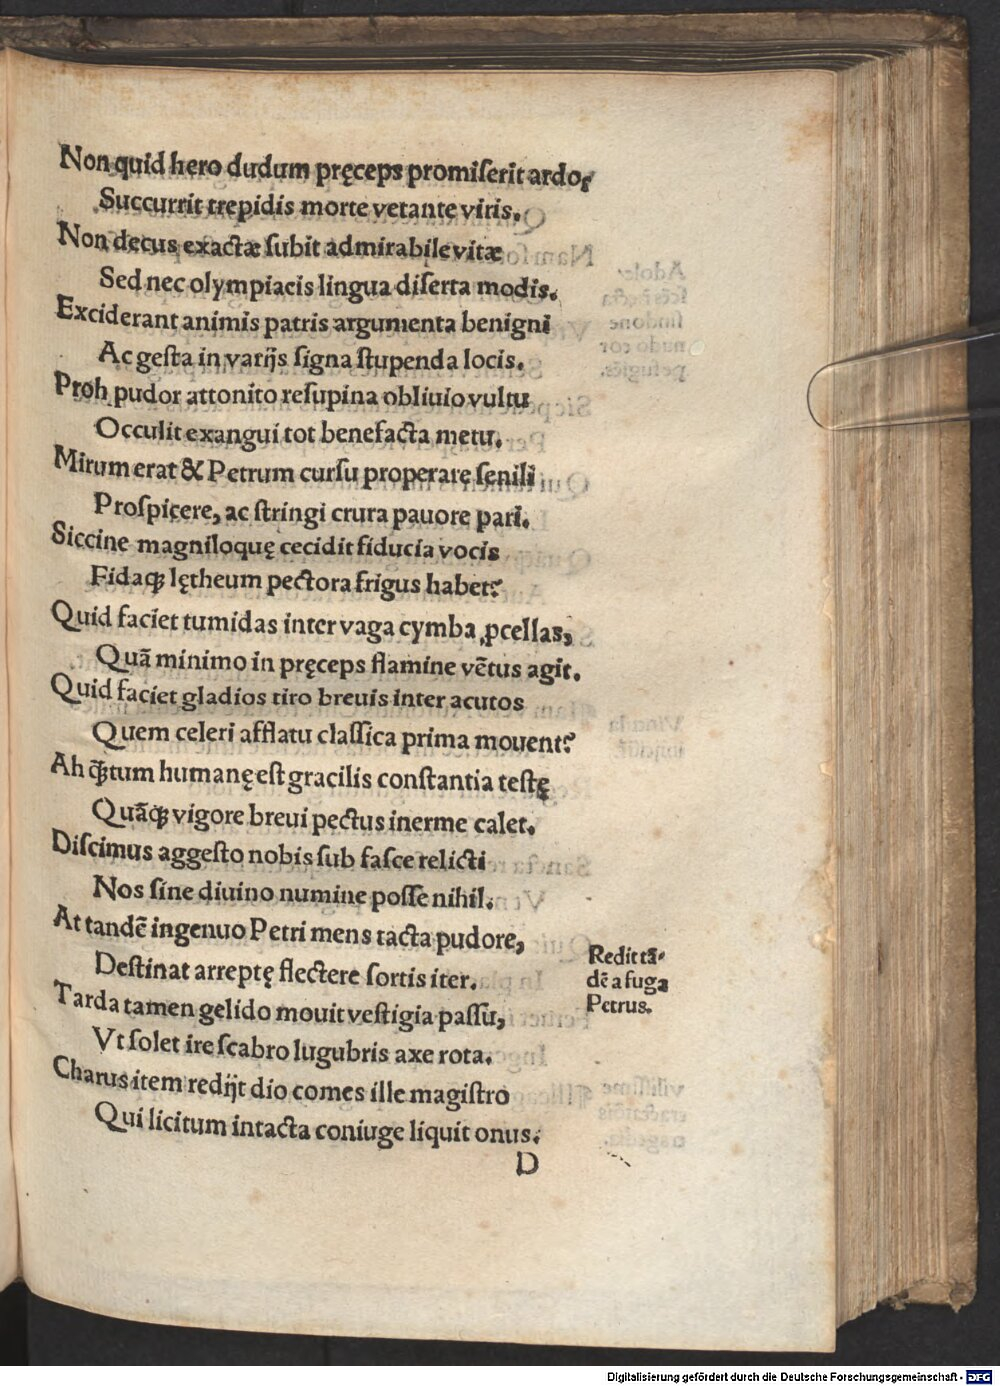 Non quid hero dudum pręceps promiſerit ardor
Succurrit trepidis morte vetante viris.
Non decus exactæ ſubit admirabile vitæ
Sed nec olympiacis lingua diſerta modis.
Exciderant animis patris argumenta benigni
Ac geſta in varijs ſigna ſtupenda locis.
Proh pudor attonito reſupina obliuio vultu
Occulit exangui tot benefacta metu.
Mirum erat & Petrum curſu properare ſenili
Proſpicere, ac ſtringi crura pauore pari.
Siccine magniloquę cecidit fiducia vocis
Fidaqꝫ lętheum pectora frigus habet?
Quid faciet tumidas inter vaga cymba ꝓcellas,
Quā minimo in pręceps flamine vētus agit.
Quid faciet gladios tiro breuis inter acutos
Quem celeri afflatu claſſica prima mouent?
Ah qꝫ̄tum humanę eſt gracilis conſtantia teſtę
Quāqꝫ vigore breui pectus inerme calet.
Diſcimus aggeſto nobis ſub faſce relicti
Nos ſine diuino numine poſſe nihil.
At tandē ingenuo Petri mens tacta pudore,
Deſtinat arreptę flectere ſortis iter.
Tarda tamen gelido mouit veſtigia paſſu,
Vt ſolet ire ſcabro lugubris axe rota.
Charus item redijt dio comes ille magiſtro
Qui licitum intacta coniuge liquit onus.
D
Redit tā-
dē a fuga
Petrus.
Digitalisierung gefördert durch die Deutsche Forschungsgemeinschaft - DFG